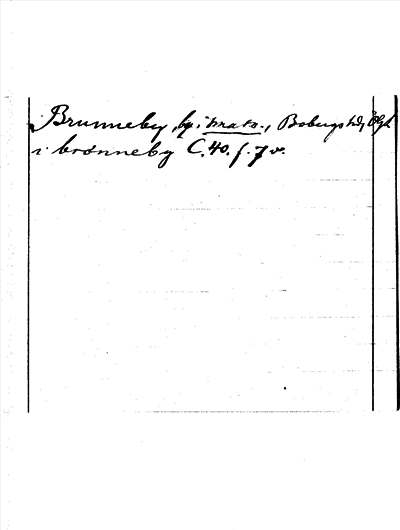 Brunneby, by i sms sn., Bobergs hd, Ögl
i brønneby C. 40. f. 7 v.